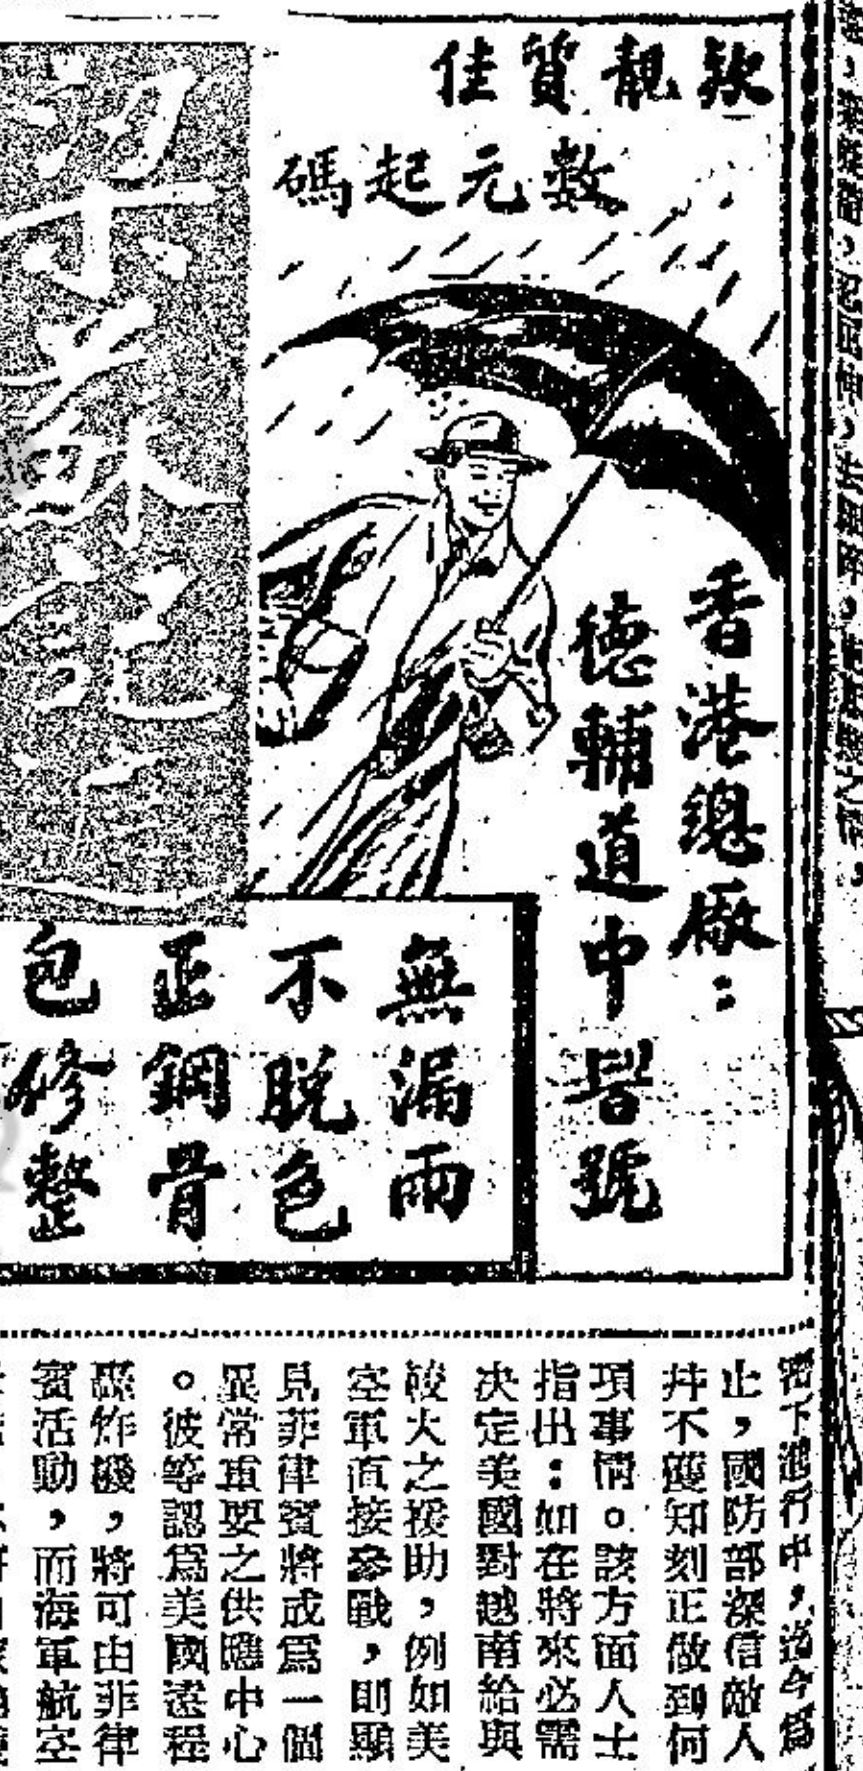 款靚質佳
數元起碼
梁蘇記遮
香港總厰：
德輔道中
號
無漏雨
不脫色
正鋼骨
包修整
密下進行中，迄今爲
止，國防部深信敵人
幷不獲知刻正做到何
項事情。該方面人士
指出：如在將來必需
决定美國對越南給與
較大之援助，例如美
空軍直接參戰，則顯
見菲律賓將成爲一個
異常重要之供應中心
。彼等認爲美國遠程
轟炸機，將可由菲律
賓活動，而海軍航空